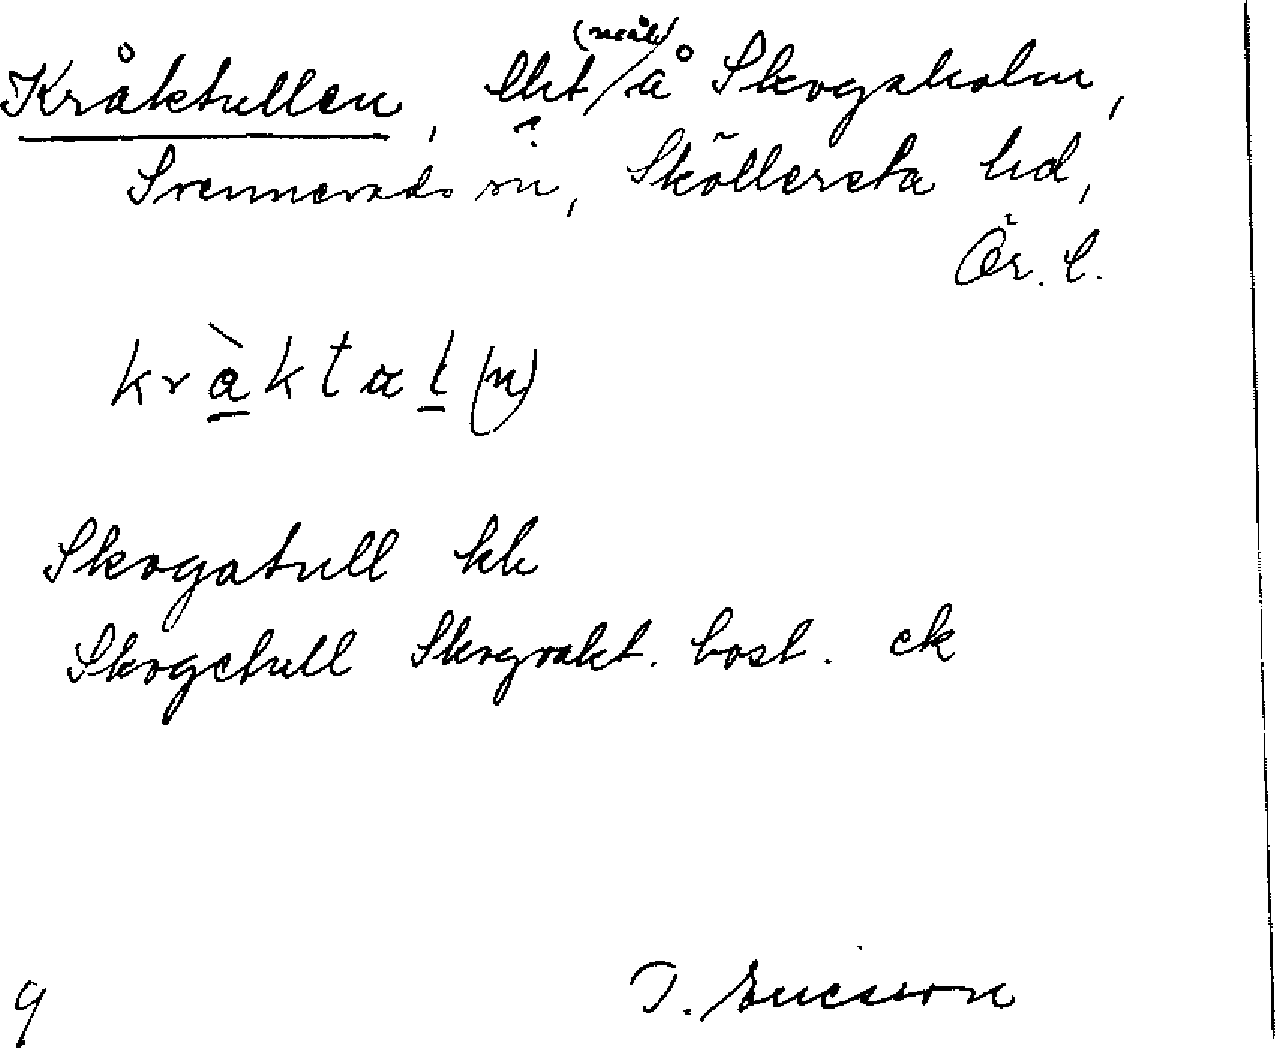 Kråktullen, lht (mål) å Skogaholm,
Svennevads sn, Sköllersta hd,
Ör. l.
kråktal(n)
Skogatull kk
Skogstull Skogvakt. bost. ek
9
J. Ericsson